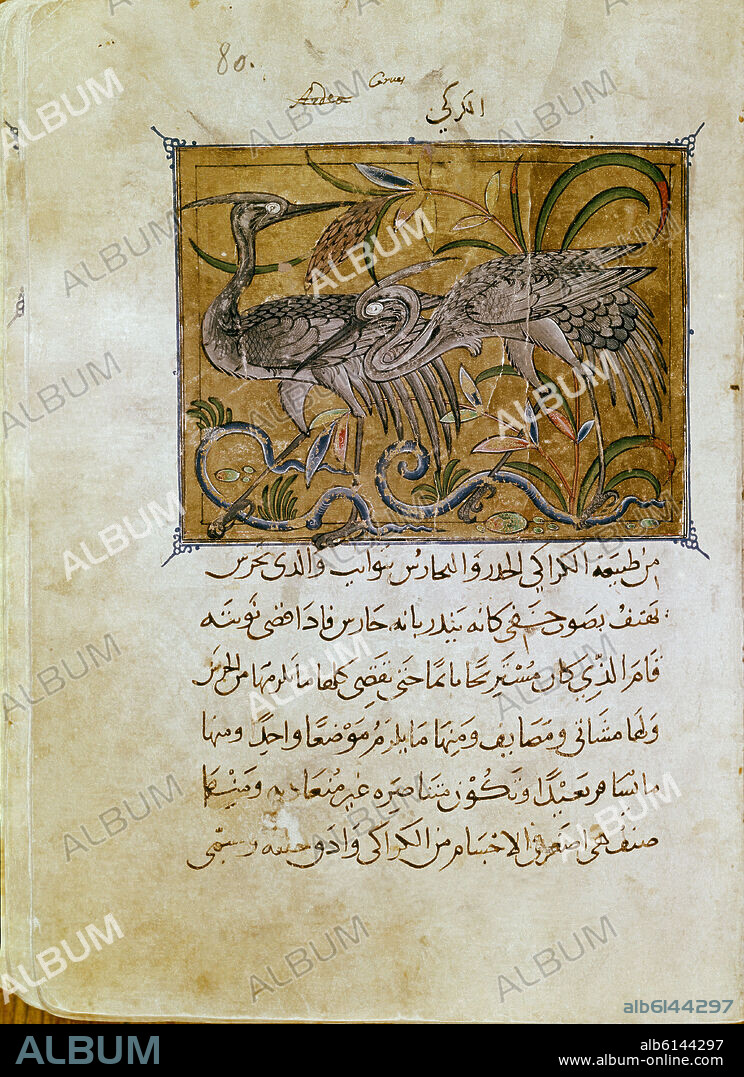 80.
Ardea Corvus
الكركي
من طبيعة الكراكي الحذر والتحارس بنوايب والذي يحرس
يهتف بصوت خفي كانه ينذر بانه حارس فاذا قضى نوبته
قام الذي كان مستريحًا نايمًا حتى تقضي كلها ما يلزمها من الحرس
ولها مشاتي ومصايف ومنها ما يلزم موضعًا واحدًا ومنها
ما يسافر بعيدًا وتكون متناصره غير متعاديه ومنها
صنف هي اصغر في الاجسام من الكراكي وتسمى
ALBUM
alb6144297
alb6144297
www.album-online.com